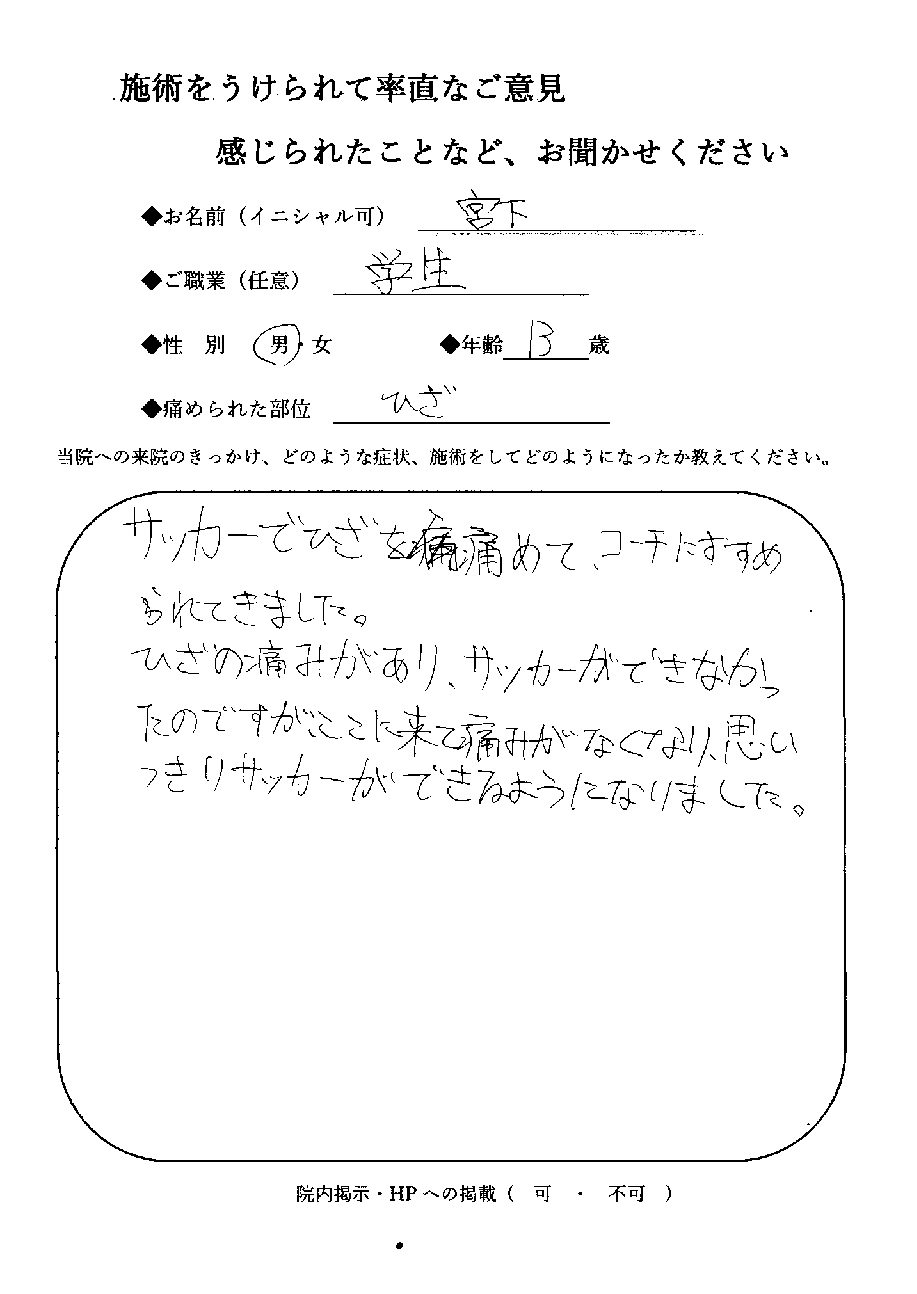 施術をうけられて率直なご意見
感じられたことなど、お聞かせください
◆お名前（イニシャル可） 宮下
◆ご職業（任意） 学生
◆性 別 男・女 ◆年齢 13 歳
◆痛められた部位 ひざ
当院への来院のきっかけ、どのような症状、施術をしてどのようになったか教えてください。
サッカーでひざを痛めて、コーチにすすめ
られてきました。
ひざの痛みがあり、サッカーができなかっ
たのですが、ここに来て痛みがなくなり、思い
っきりサッカーができるようになりました。
院内掲示・HPへの掲載（ 可 ・ 不可 ）